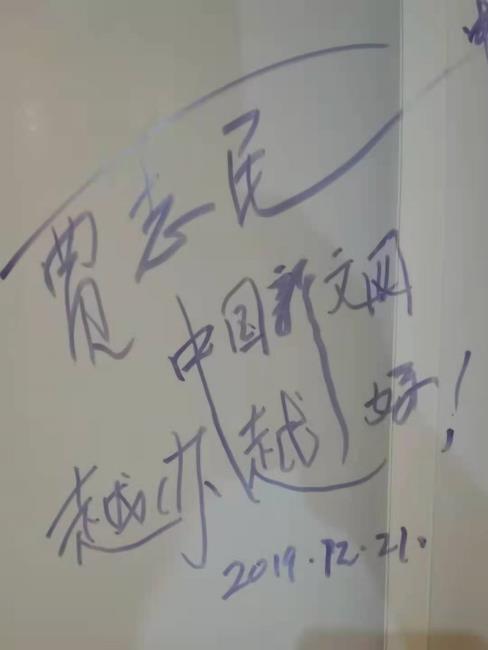 贾志民
中国新文网
越办越好！
2019.12.21.